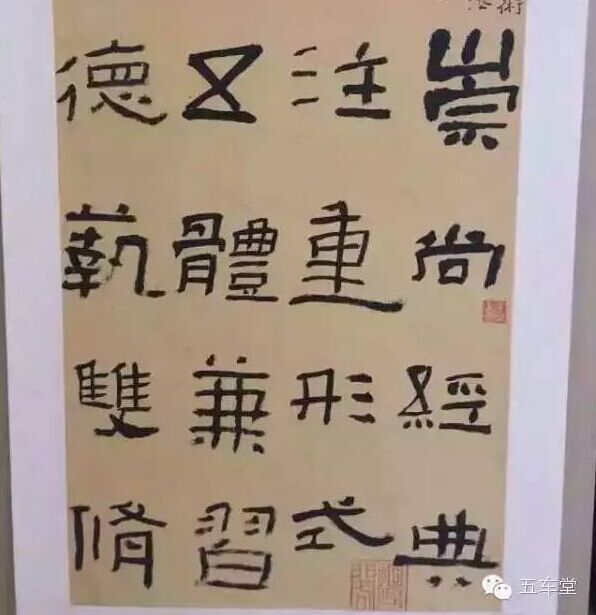 崇尚經典
注重形式
五體兼習
德藝雙脩
五车堂